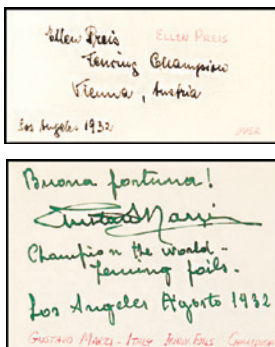 Ellen Preis
ELLEN PREIS
Fencing Champion
Vienna, Austria
Los Angeles 1932
OVER
Buona fortuna!
Gustavo Marzi
Champion the world -
fencing foils.
Los Angeles Agosto 1932
GUSTAVO MARZI - ITALY FOILS